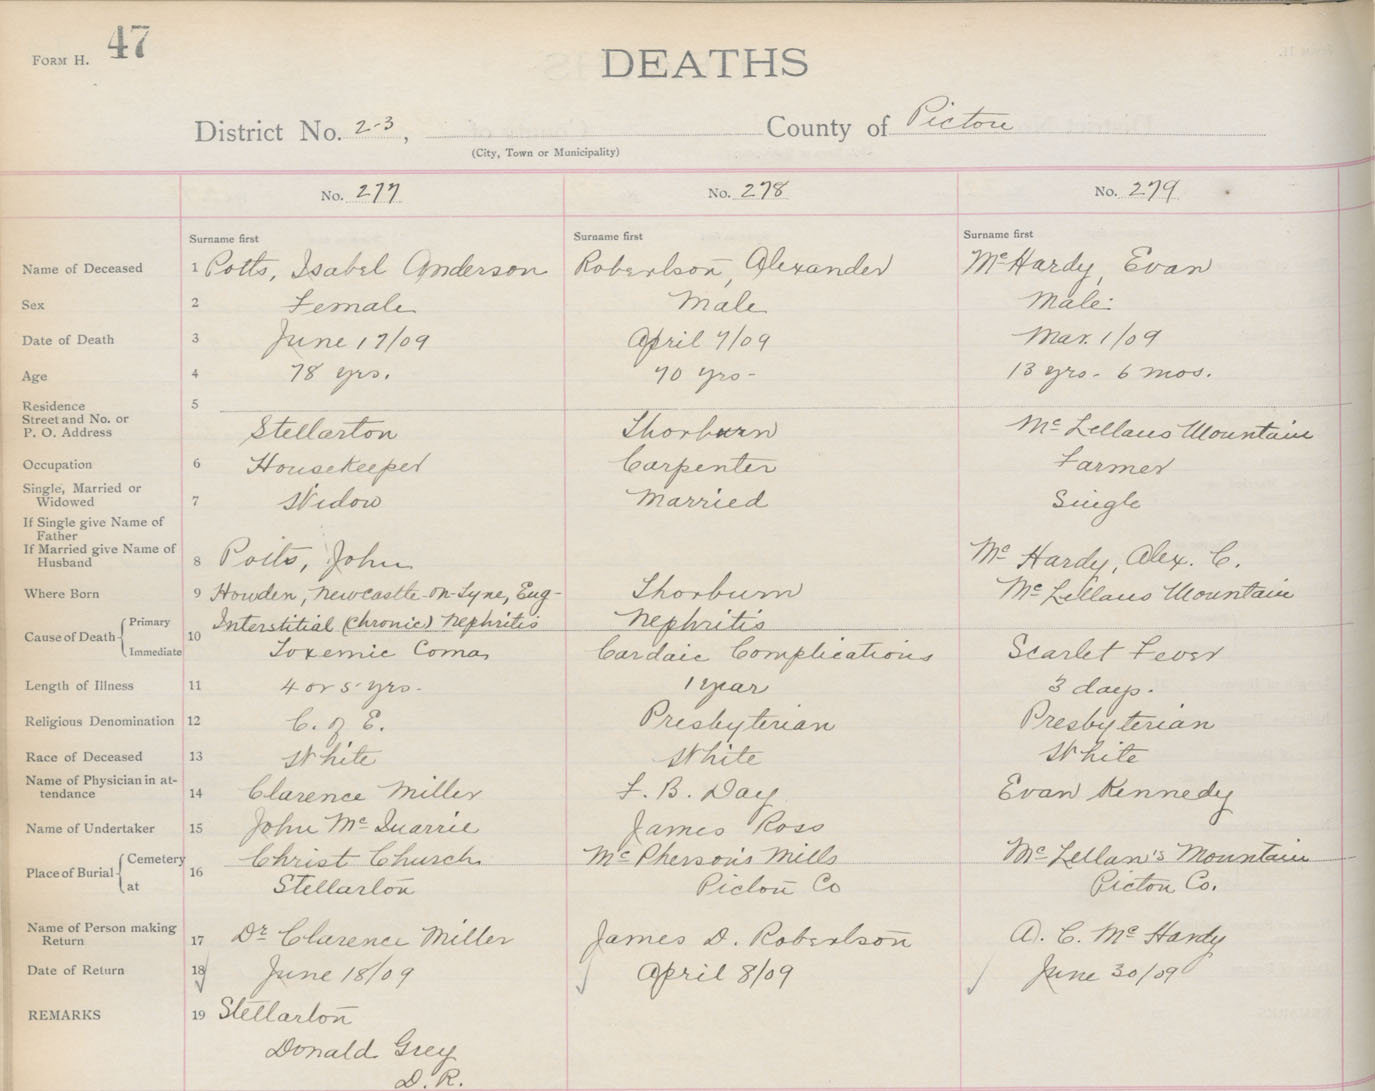 FORM H. 47
DEATHS
District No. 2-3, County of Pictou
(City, Town or Municipality)
No. 277 No. 278 No. 279
Surname first Surname first Surname first
Name of Deceased 1 Potts, Isabel Anderson Robertson, Alexander McHardy, Evan
Sex 2 Female Male Male
Date of Death 3 June 17/09 April 7/09 Mar. 1/09
Age 4 78 yrs. 70 yrs- 13 yrs- 6 mos.
Residence 5
Street and No. or
P. O. Address Stellarton Thorburn McLellans Mountain
Occupation 6 Housekeeper Carpenter Farmer
Single, Married or
Widowed 7 Widow Married Single
If Single give Name of
Father
If Married give Name of
Husband 8 Potts, John McHardy, Alex. C.
Where Born 9 Howden, Newcastle-on-Tyne, Eng- Thorburn McLellans Mountain
Cause of Death Primary 10 Interstitial (chronic) Nephritis Nephritis
Immediate Toxemic Coma Cardaic Complications Scarlet Fever
Length of Illness 11 4 or 5 yrs. 1 year 3 days.
Religious Denomination 12 C. of E. Presbyterian Presbyterian
Race of Deceased 13 White White White
Name of Physician in at-
tendance 14 Clarence Miller F. B. Day Evan Kennedy
Name of Undertaker 15 John McQuarrie James Ross
Place of Burial Cemetery 16 Christ Church McPherson's Mills McLellan's Mountain
at Stellarton Pictou Co Pictou Co.
Name of Person making
Return 17 Dr Clarence Miller James D. Robertson A. C. McHardy
Date of Return 18 June 18/09 April 8/09 June 30/09
REMARKS 19 Stellarton
Donald Grey
D. R.